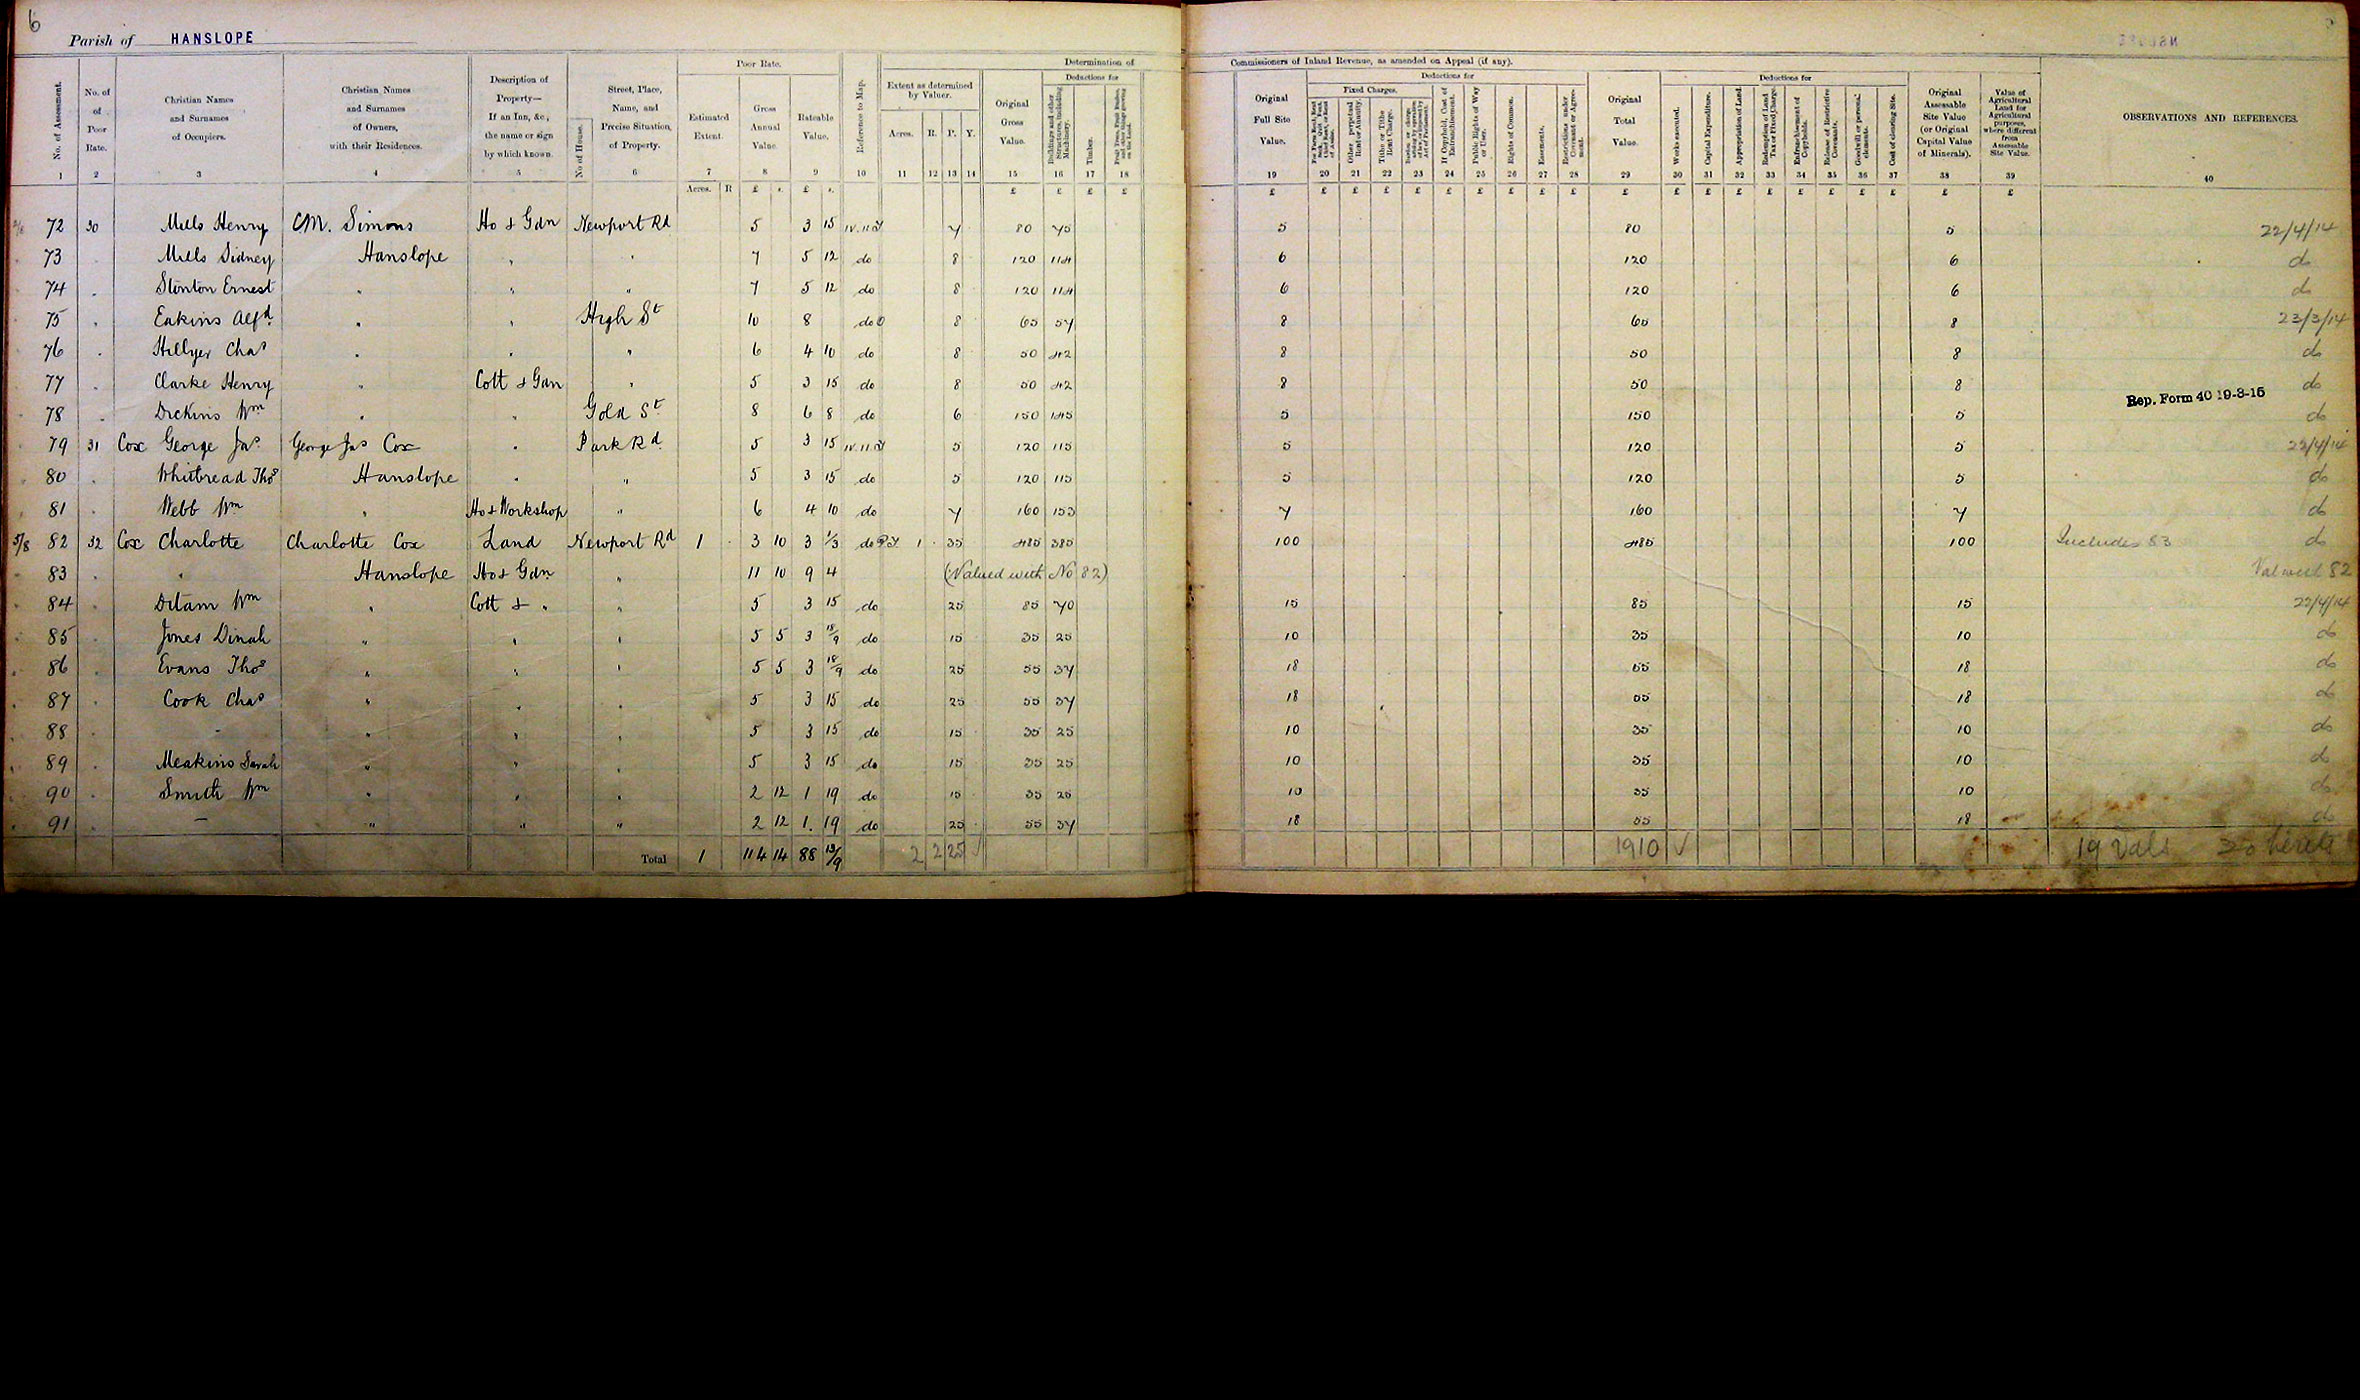 6
Parish of HANSLOPE
Poor Rate. Determination of Commissioners of Inland Revenue, as amended on Appeal (if any).
No. of Assessment. No. of Poor Rate. Christian Names and Surnames of Occupiers. Christian Names and Surnames of Owners, with their Residences. Description of Property— If an Inn, &c., the name or sign by which known. No of House. Street, Place, Name, and Precise Situation of Property. Estimated Extent. Gross Annual Value. Rateable Value. Reference to Map. Extent as determined by Valuer. Acres. R. P. Y. Original Gross Value. Deductions for Buildings and other Structures, including Machinery. Timber. Fruit Trees, Fruit Bushes, and other things growing on the Land. Original Full Site Value. Deductions for Fixed Charges. Other perpetual Rent or Annuity. Tithe or Tithe Rent Charge. If Copyhold, Cost of Enfranchisement. Public Rights of Way or User. Rights of Common. Easements. Restrictions under Covenant or Agreement. Original Total Value. Deductions for Works executed. Capital Expenditure. Appropriation of Land. Redemption of Land Tax or Fixed Charge. Enfranchisement of Copyholds. Release of Restrictive Covenants. Goodwill or personal elements. Cost of clearing Site. Original Assessable Site Value (or Original Capital Value of Minerals). Value of Agricultural Land for Agricultural purposes, where different from Assessable Site Value. OBSERVATIONS AND REFERENCES.
1 2 3 4 5 6 7 8 9 10 11 12 13 14 15 16 17 18 19 20 21 22 23 24 25 26 27 28 29 30 31 32 33 34 35 36 37 38 39 40
Acres. R £ s. £ s. £ £ £ £ £ £ £ £ £ £ £ £ £ £ £ £ £ £ £ £ £ £ £ £ £ £
72 30 Mills Henry C.M. Simons Ho & Gdn Newport Rd 5 3 15 7 80 75 5 80 5 22/4/14
73 Mills Sidney Hanslope " " 7 5 12 do 8 120 114 6 120 6 do
74 Stonton Ernest " " " 7 5 12 do 8 120 114 6 120 6 do
75 Eakins Alfd " " High St 10 8 do 8 65 57 8 65 8 23/3/14
76 Hillyer Chas " " " 6 4 10 do 8 50 42 8 50 8 do
77 Clarke Henry " Cott & Gdn " 5 3 15 do 8 50 42 8 50 8 do
Rep. Form 40 19-3-15
78 Dickins Wm " " Gold St 8 6 8 do 6 150 145 5 150 5 do
79 31 Cox George Jas George Jas Cox " Park Rd 5 3 15 5 120 115 5 120 5 22/4/14
80 Whitbread Thos Hanslope " " 5 3 15 do 5 120 115 5 120 5 do
81 Webb Wm " Ho & Workshop " 6 4 10 do 7 160 153 7 160 7 do
82 32 Cox Charlotte Charlotte Cox Land Newport Rd 1 3 10 3 1/3 do 1 35 485 385 100 485 100 Includes 83 do
83 " Hanslope Ho & Gdn " 11 10 9 4 (Valued with No 82) Val with 82
84 Ditam Wm " Cott & " " 5 3 15 do 25 85 70 15 85 15 22/4/14
85 Jones Dinah " " " 5 5 3 18/9 do 15 35 25 10 35 10 do
86 Evans Thos " " " 5 5 3 18/9 do 25 55 37 18 55 18 do
87 Cook Chas " " " 5 3 15 do 25 55 37 18 55 18 do
88 - " " " 5 3 15 do 15 35 25 10 35 10 do
89 Meakins Sarah " " " 5 3 15 do 15 35 25 10 35 10 do
90 Smith Wm " " " 2 12 1 19 do 15 35 25 10 35 10 do
91 — " " " 2 12 1. 19 do 25 55 37 18 55 18 do
Total 1 114 14 88 13/9 2 2 25 1910 ✓ 19 Vals 20 heredts